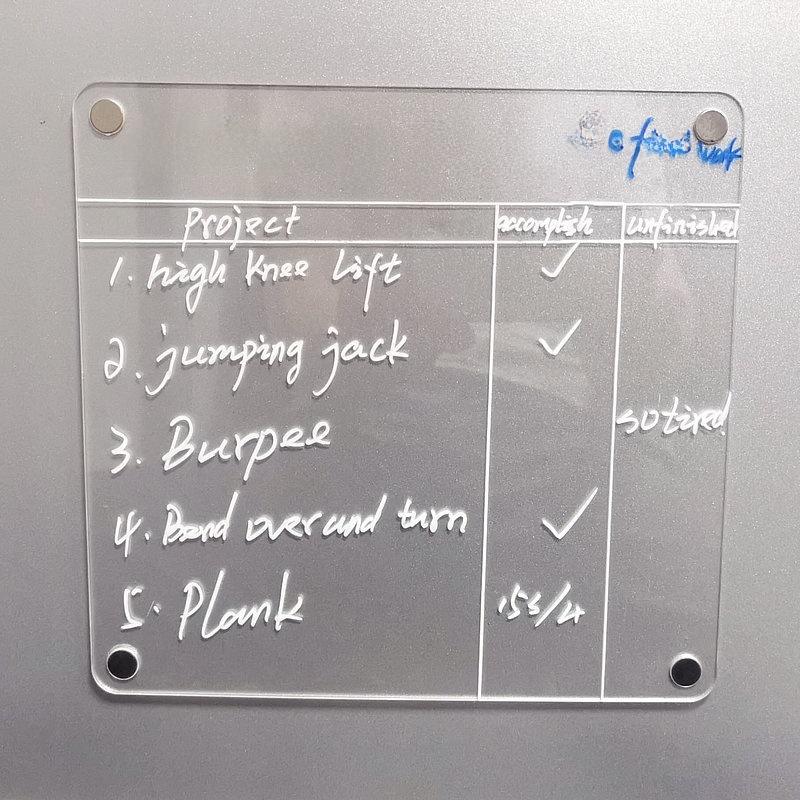 work
Project accomplish unfinished
1. high knee lift ✓
2. jumping jack ✓
3. Burpee so tired
4. Bend over and turn ✓
5. Plank